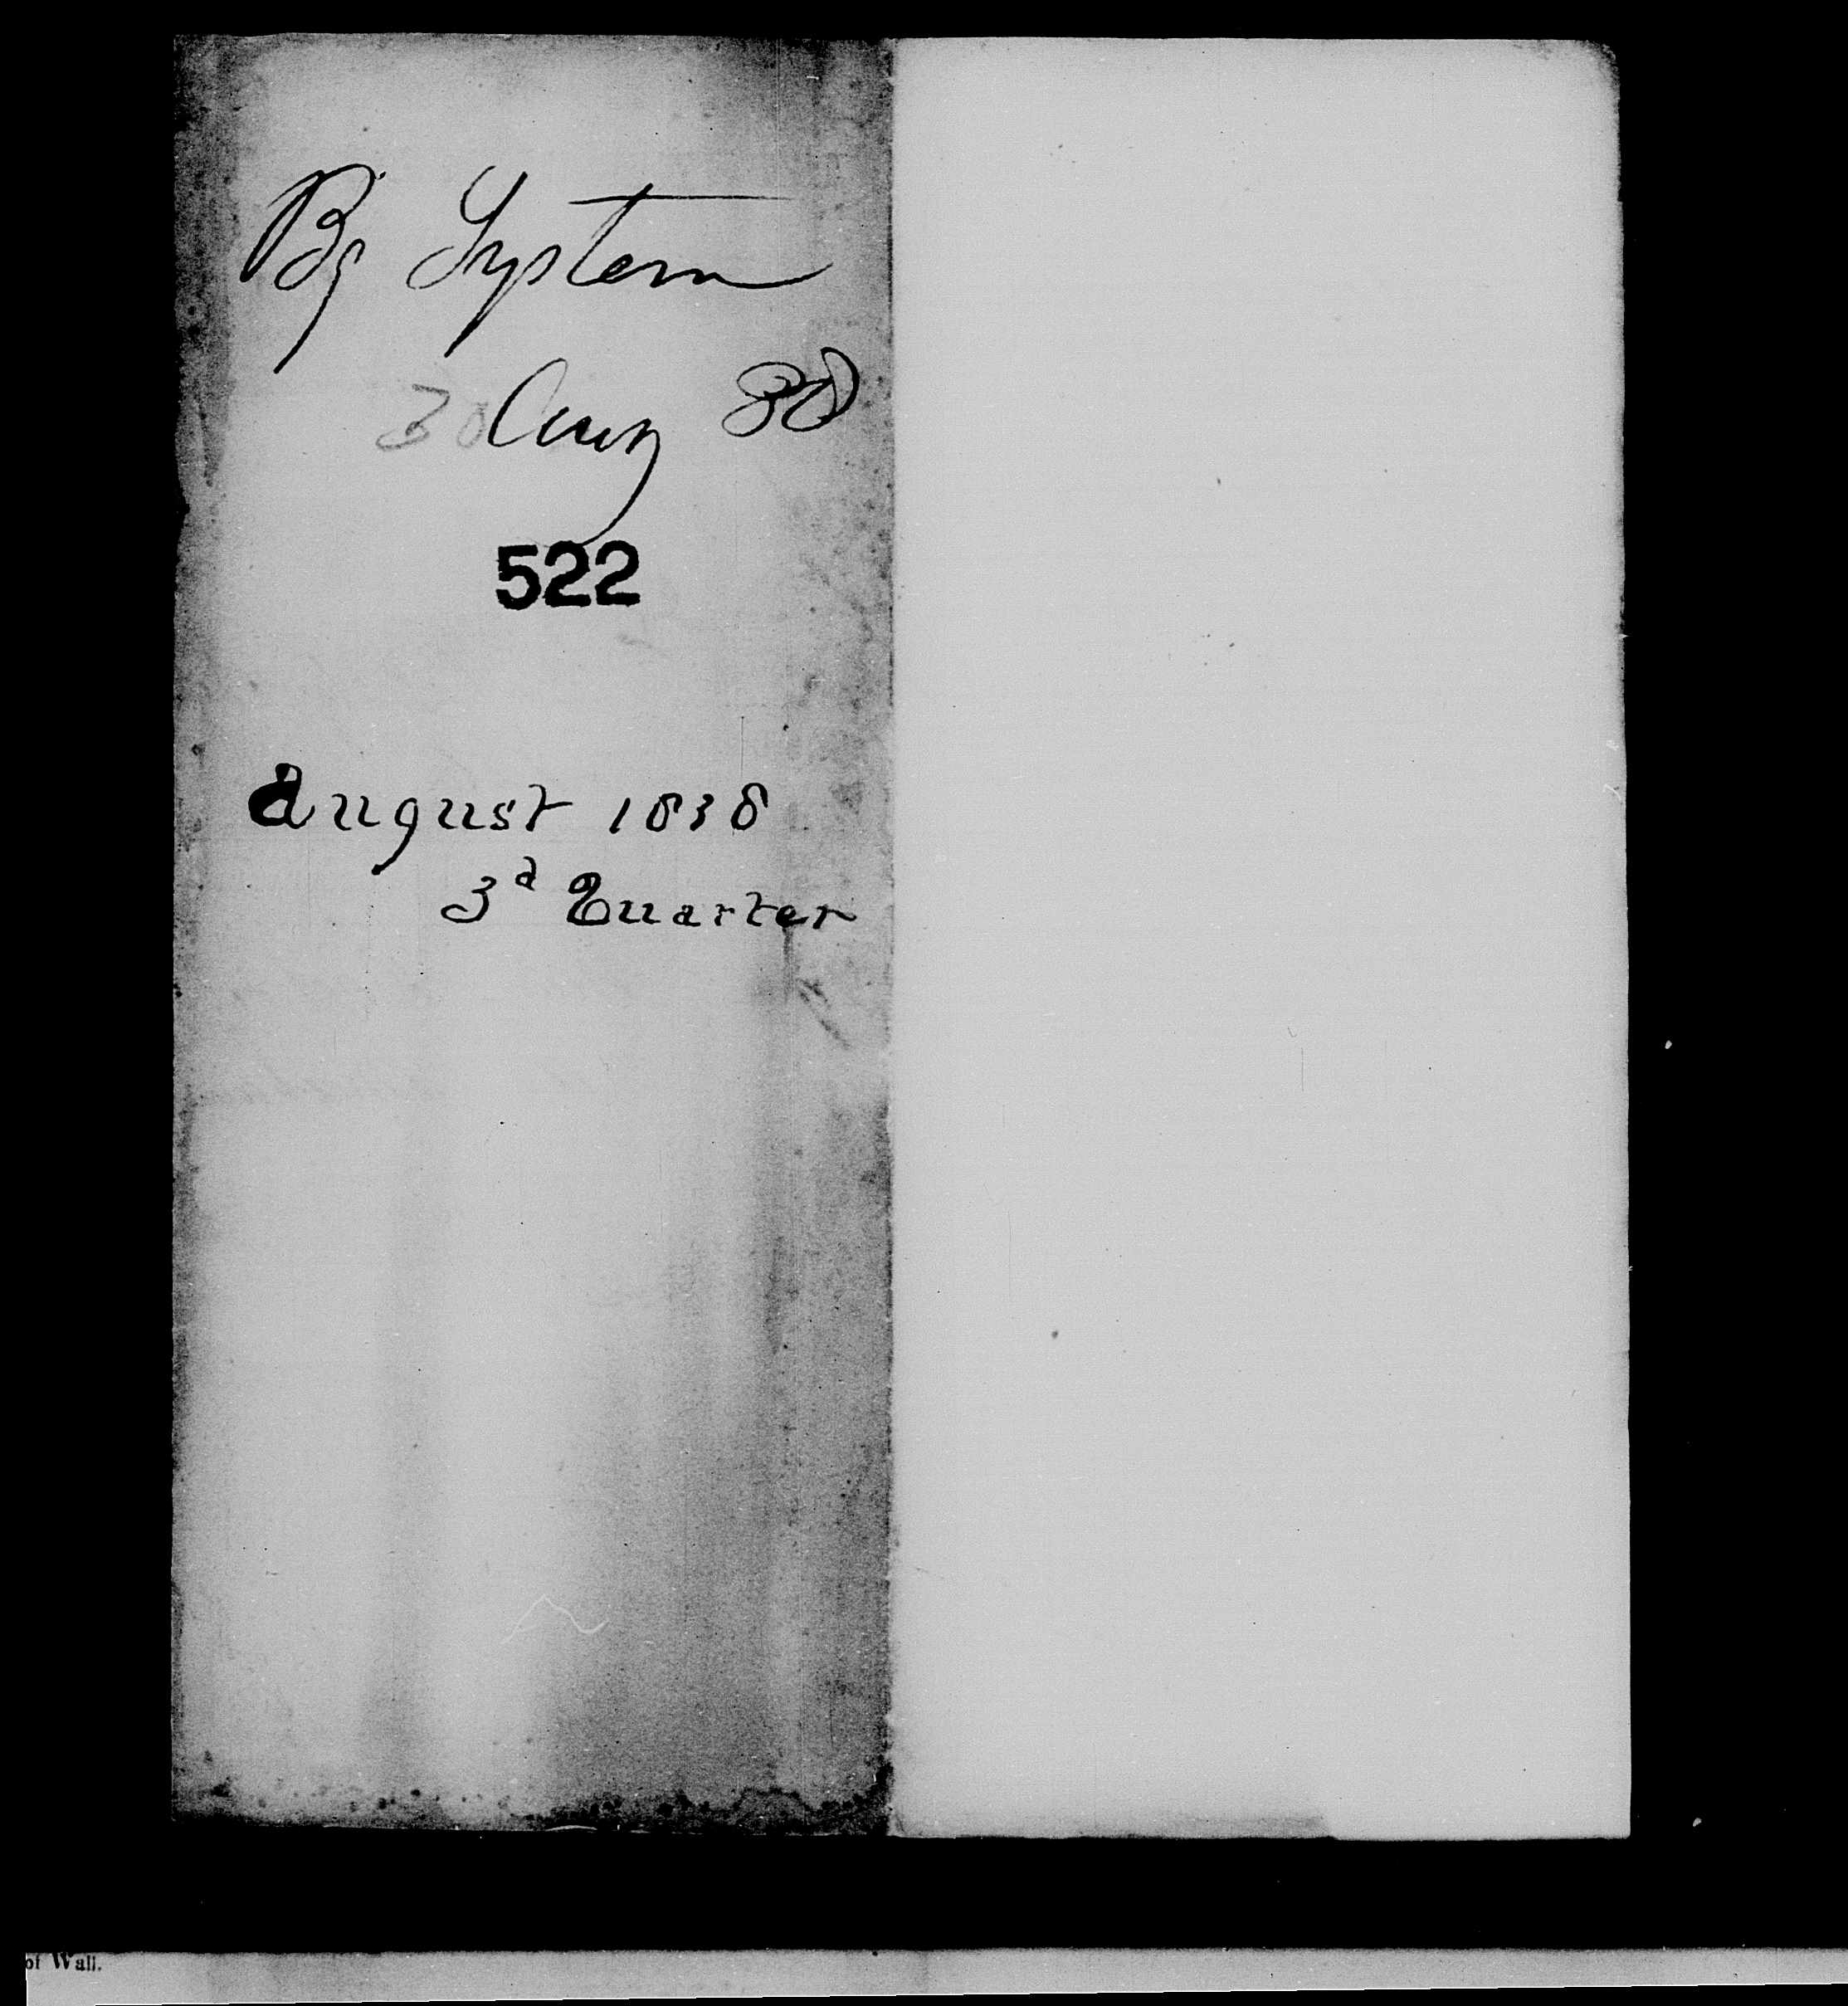 By System
30 Aug 38
522
August 1838
3d Quarter
of Wall.